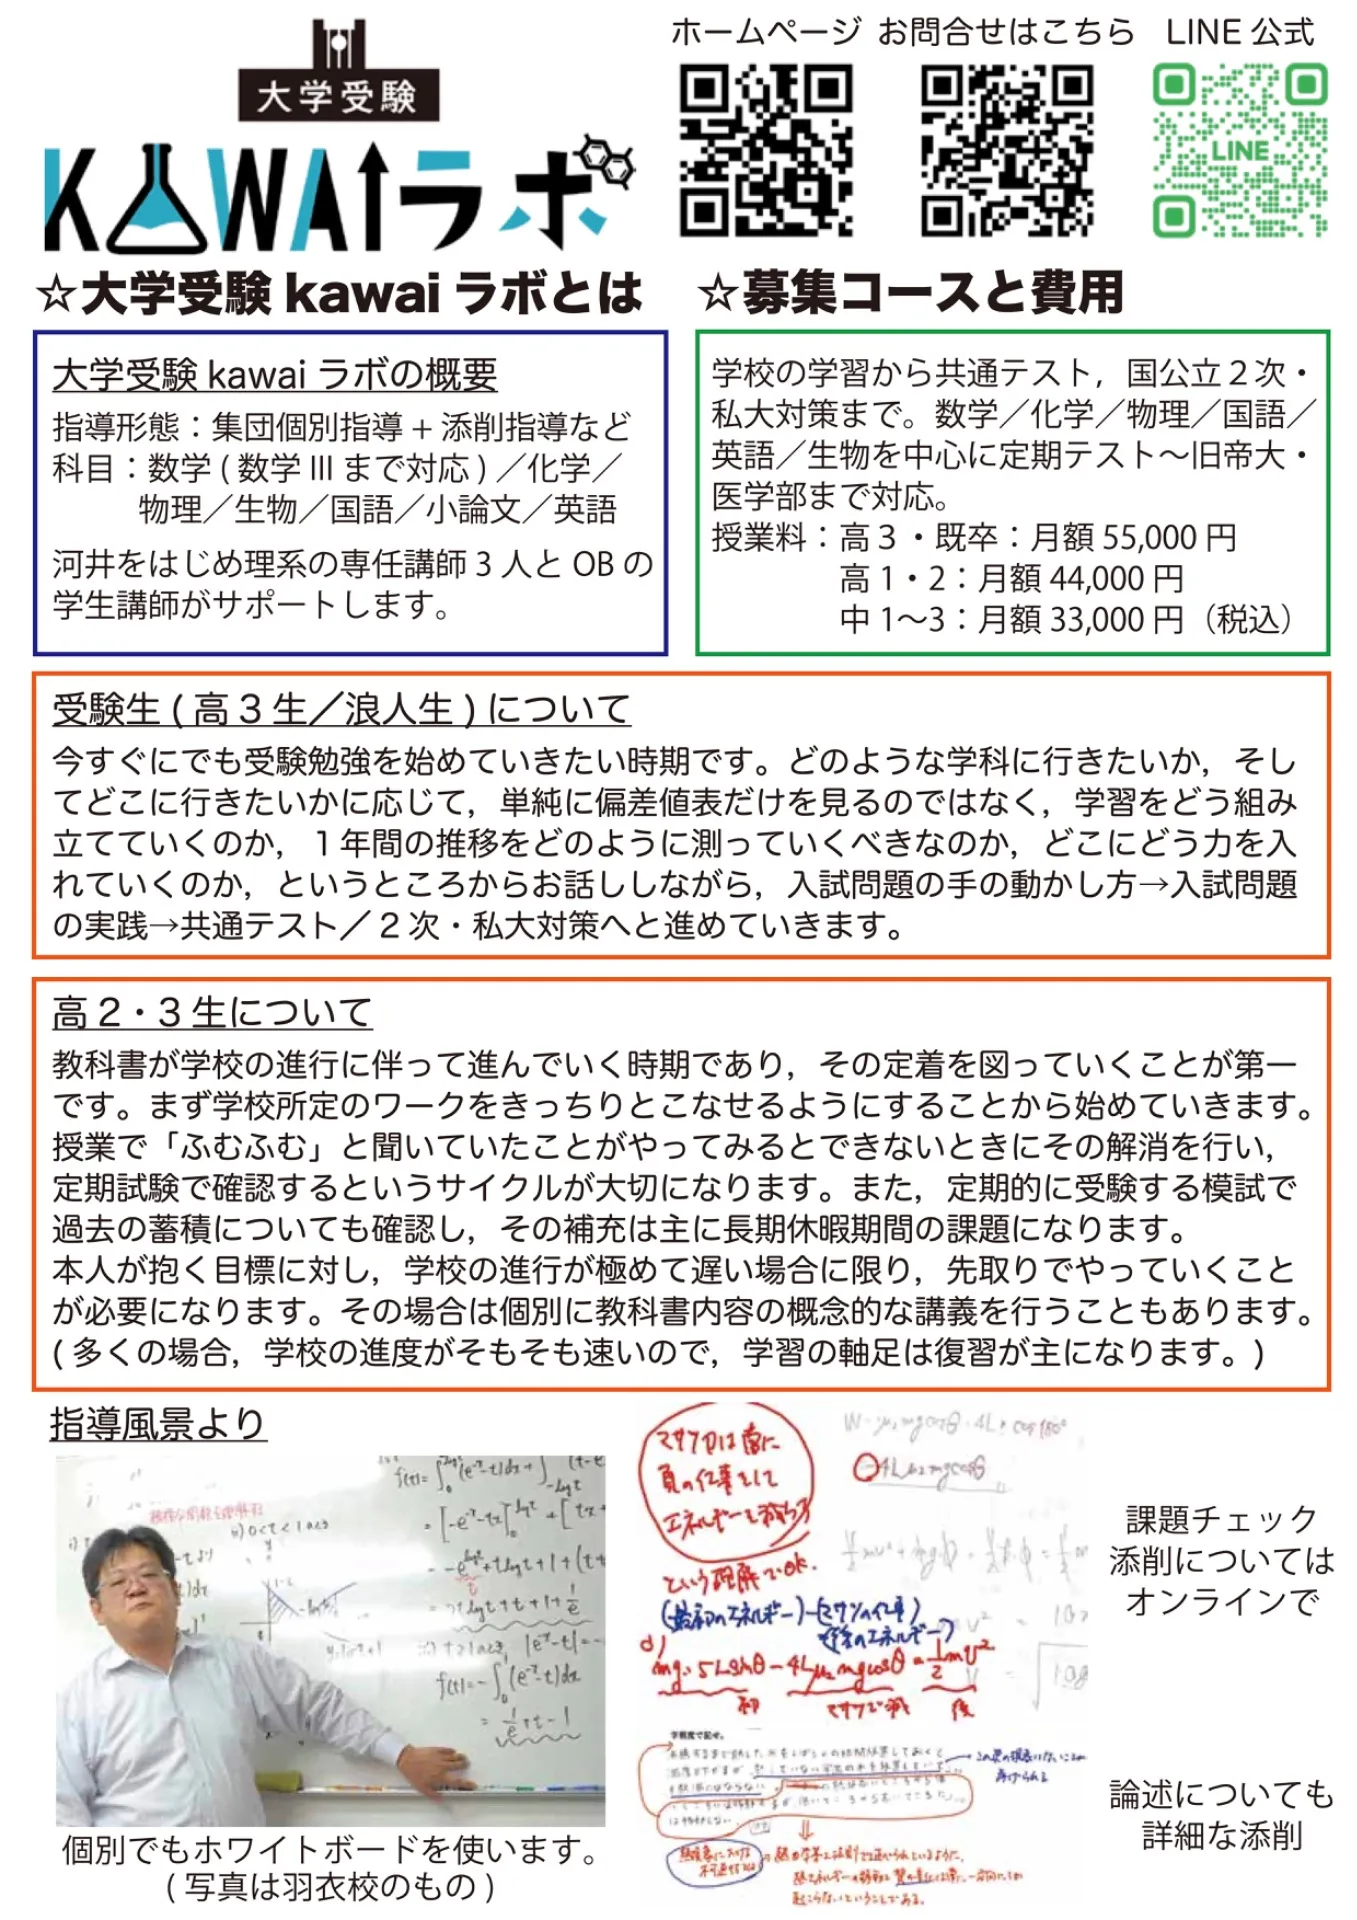 大学受験
KAWAIラボ
ホームページ
お問合せはこちら
LINE公式
LINE
☆大学受験 kawai ラボとは
大学受験 kawai ラボの概要
指導形態：集団個別指導 + 添削指導など
科目：数学 ( 数学 III まで対応 ) ／化学／
物理／生物／国語／小論文／英語
河井をはじめ理系の専任講師 3 人と OB の
学生講師がサポートします。
☆募集コースと費用
学校の学習から共通テスト，国公立２次・
私大対策まで。数学／化学／物理／国語／
英語／生物を中心に定期テスト～旧帝大・
医学部まで対応。
授業料：高３・既卒：月額 55,000 円
高 1・2：月額 44,000 円
中 1～3：月額 33,000 円（税込）
受験生 ( 高 3 生／浪人生 ) について
今すぐにでも受験勉強を始めていきたい時期です。どのような学科に行きたいか，そし
てどこに行きたいかに応じて，単純に偏差値表だけを見るのではなく，学習をどう組み
立てていくのか，１年間の推移をどのように測っていくべきなのか，どこにどう力を入
れていくのか，というところからお話ししながら，入試問題の手の動かし方→入試問題
の実践→共通テスト／２次・私大対策へと進めていきます。
高 2・3 生について
教科書が学校の進行に伴って進んでいく時期であり，その定着を図っていくことが第一
です。まず学校所定のワークをきっちりとこなせるようにすることから始めていきます。
授業で「ふむふむ」と聞いていたことがやってみるとできないときにその解消を行い，
定期試験で確認するというサイクルが大切になります。また，定期的に受験する模試で
過去の蓄積についても確認し，その補充は主に長期休暇期間の課題になります。
本人が抱く目標に対し，学校の進行が極めて遅い場合に限り，先取りでやっていくこと
が必要になります。その場合は個別に教科書内容の概念的な講義を行うこともあります。
( 多くの場合，学校の進度がそもそも速いので，学習の軸足は復習が主になります。)
指導風景より
個別でもホワイトボードを使います。
( 写真は羽衣校のもの )
マサツ力は常に
負の仕事をして
エネルギーを減らす
という理解でOK.
(最初のエネルギー)-(マサツの仕事)
mg・5Lsinθ - 4Lμ₂mgcosθ = 1/2 mv²
初
マサツで減
後
-4Lμ₂mgcosθ
字程度で記せ。
課題チェック
添削については
オンラインで
論述についても
詳細な添削